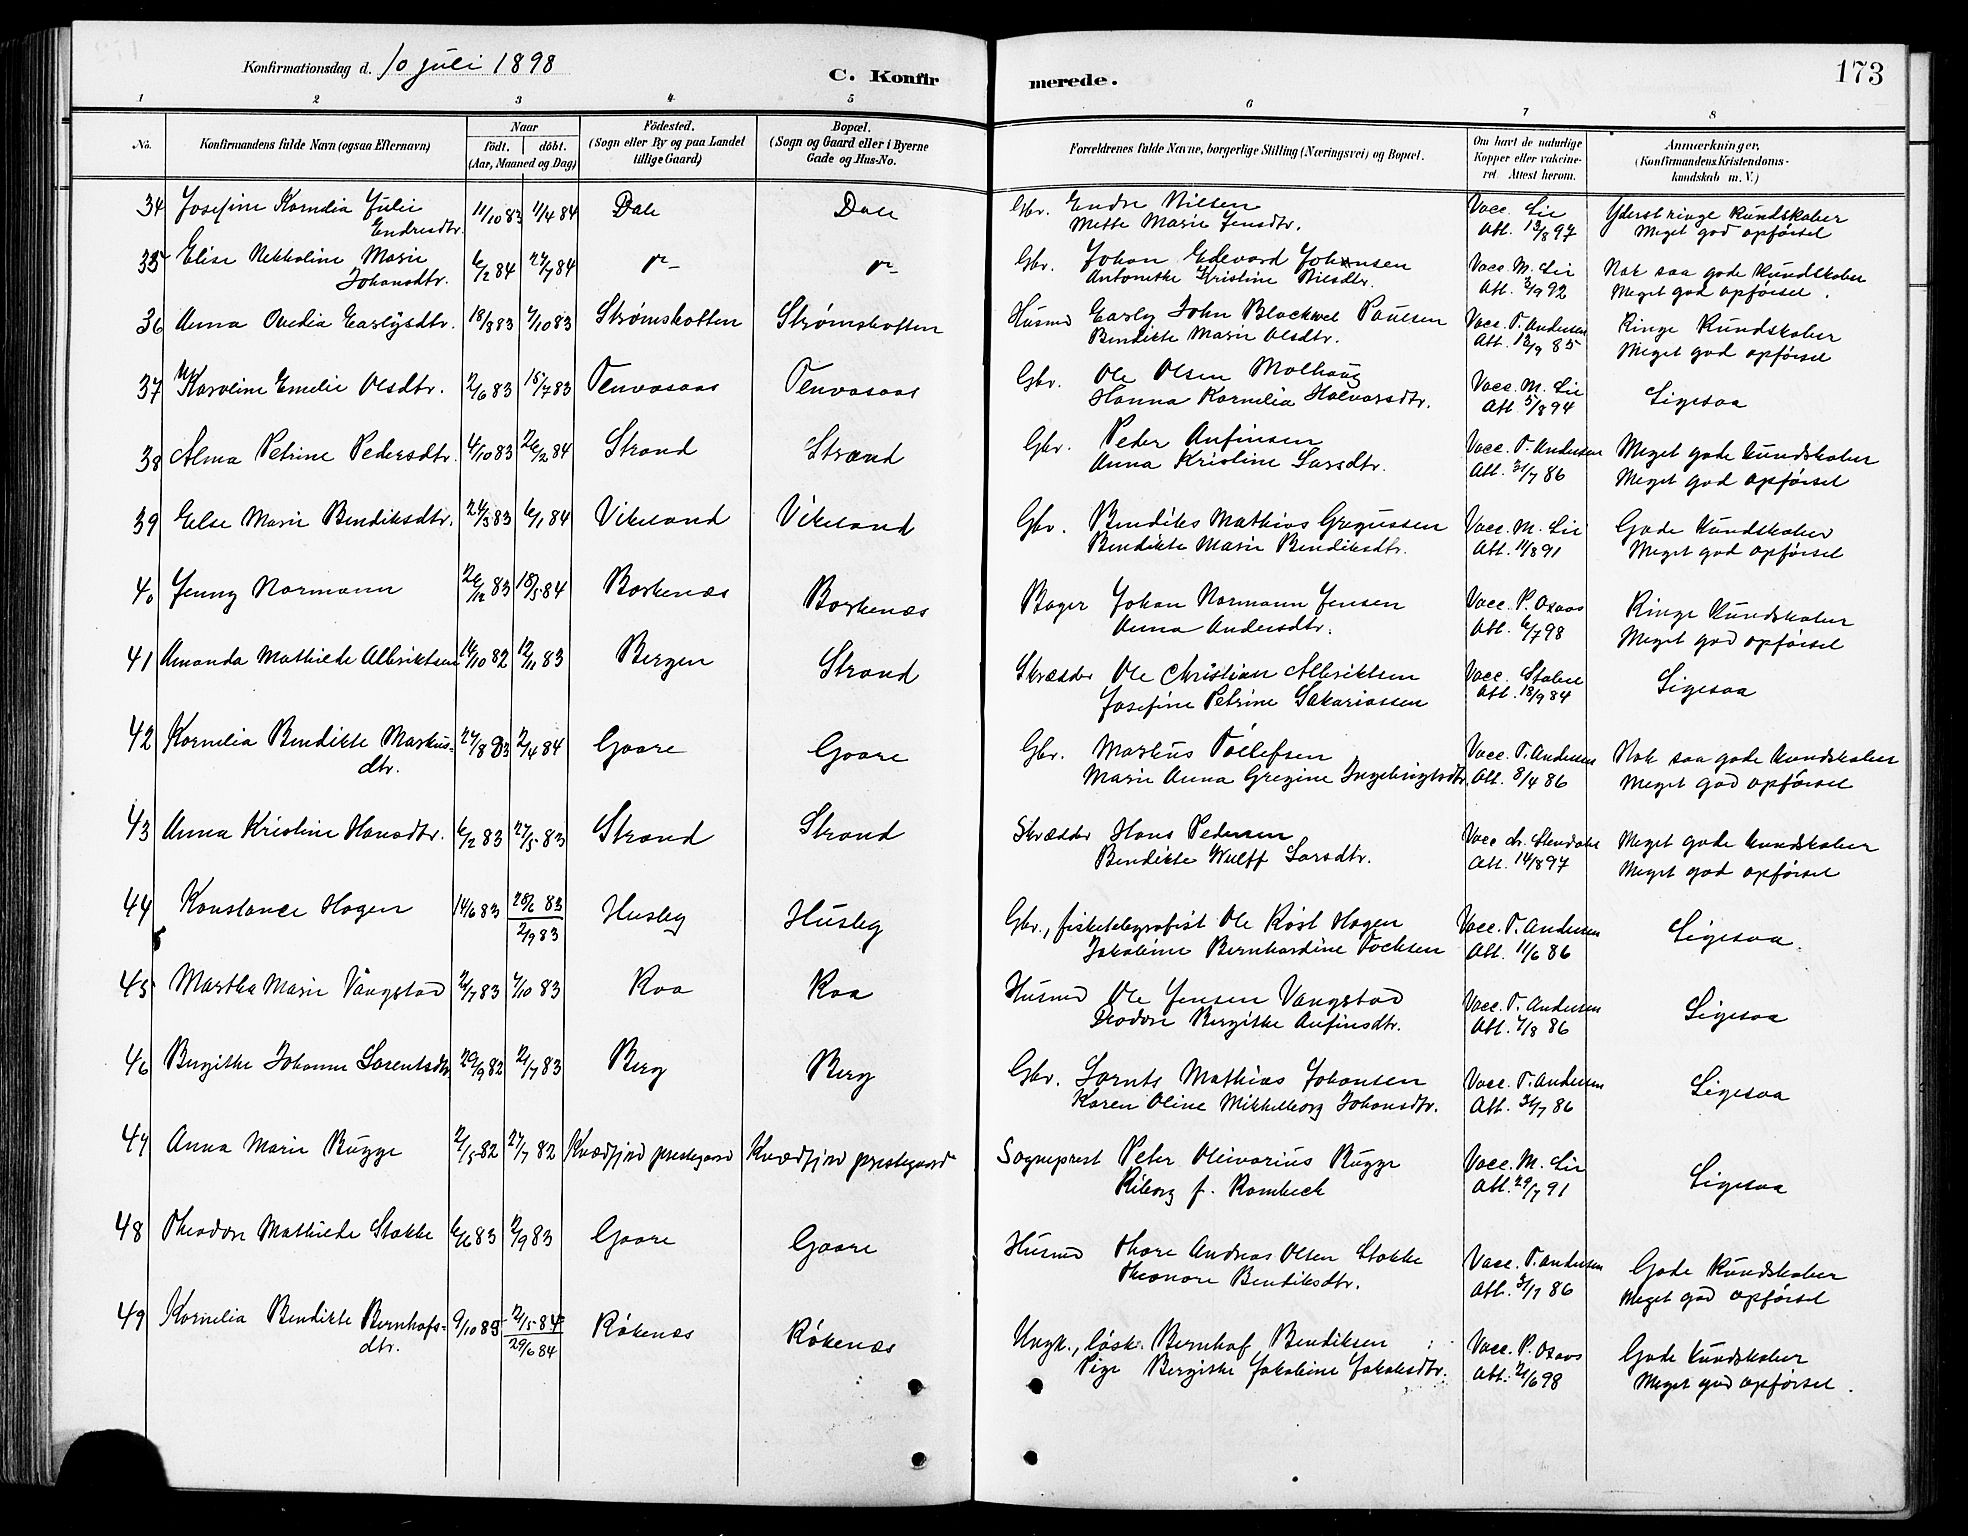 Konfirmationsdag d. 10 juli 1898
C. Konfir
merede.
173
1 2 3 4 5 6 7 8
No. Konfirmandens fulde Navn (ogsaa Efternavn) Naar födt. döbt. (Aar, Maaned og Dag) Födested. (Sogn eller By og paa Landet tillige Gaard) Bopæl. (Sogn og Gaard eller i Byerne Gade og Hus-No. Forældrenes fulde Navne, borgerlige Stilling (Næringsvei) og Bopæl. Om havt de naturlige Kopper eller vakcineret. Attest herom. Anmærkninger, (Konfirmandens Kristendomskundskab m. V.)
34 Josefine Kornelia Julie 11/10 83 11/4 84 Dale Dale Gbr. Endre Nilsen Vacc. Lie Yderst ringe Kundskaber
Endresdtr. Mette Marie Jensdtr. Att. 13/8 97 Meget god opførsel
35 Elise Nekkoline Marie 6/2 84 27/7 84 Gbr. Johan Edevard Johansen Vacc. M. Lie Nok saa gode Kundskaber
Johansdtr. Antonette Kristine Nilsdtr. Att. 3/9 92 Meget god opførsel.
36 Anna Ovedia Earlysdtr. 18/8 83 7/10 83 Strømsbotten Strømsbotten Husmd Early John Blackwel Paulsen Vacc. T. Andersen Ringe Kundskaber
Bendikte Marie Olsdtr. Att. 12/9 85 Meget god opførsel
37 Karoline Emelie Olsdtr. 2/6 83 15/7 83 Tenvasaas Tenvasaas Gbr. Ole Olsen Molhaug Vacc. M. Lie Ligesaa
Hanna Kornelia Halvorsdtr. Att. 5/8 94
38 Alma Petrine Pedersdtr. 4/10 83 26/2 84 Strand Strand Gbr. Peder Anfinsen Vacc. T. Andersen Meget gode Kundskaber
Anna Kristine Larsdtr. Att. 31/7 86 Meget god opførsel
39 Else Marie Bendiksdtr. 26/3 83 6/1 84 Vikeland Vikeland Gbr. Bendiks Mathias Gregussen Vacc. M. Lie Gode Kundskaber
Bendikte Marie Bendiksdtr. Att. 11/8 91 Meget god opførsel
40 Jenny Normann 26/12 83 18/5 84 Borkenæs Borkenæs Bager Johan Normann Jensen Vacc. P. Oxaas Ringe Kundskaber
Anna Andersdtr. Att. 6/7 98 Meget god opførsel
41 Amanda Mathilde Albriktsen 14/10 82 12/11 83 Bergen Strand Skrædder Ole Christian Albriktsen Vacc. Stabel Ligesaa
Josefine Petrine Sakariassen Att. 18/9 84
42 Kornelia Bendikte Markus- 27/8 83 2/4 84 Gaare Gaare Gbr. Markus Tollefsen Vacc. T. Andersen Nok saa gode Kundskaber
dtr. Marie Anna Gregine Ingebrigtsdtr. Att. 8/4 86 Meget god opførsel
43 Anna Kristine Hansdtr. 6/2 83 27/5 83 Strand Strand Skrædder Hans Pedersen Vacc. Meget gode Kundskaber
Bendikte Wulff Larsdtr. Att. 14/8 97 Meget god opførsel
44 Konstance Hagen 14/6 83 25/6 83 Husby Husby Gbr., fisketelegrafist Ole Kost Hagen Vacc. T. Andersen Ligesaa.
2/9 83 Jakobine Bernhardine Tocksen Att. 11/6 86
45 Martha Marie Vangstad 21/7 83 7/10 83 Roa Roa Husmd Ole Jensen Vangstad Vacc. T. Andersen Ligesaa
Deodore Bergitte Anfinsdtr. Att. 7/8 86
46 Bergitte Johanne Lorentsdtr 29/9 82 21/7 83 Berg Berg Gbr. Lornts Mathias Johansen Vacc. T. Andersen Ligesaa
Karen Oline Mikkelborg Johansdtr. Att. 31/7 86
47 Anna Marie Bugge 2/5 82 27/7 82 Kvædfjord prestegaard Kvædfjord prestegaard Sogneprest Peter Olivarius Bugge Vacc. M. Lie Ligesaa
Riborg f. Rombeck Att. 29/7 91
48 Theodore Mathilde Stokke 6/6 83 2/9 83 Gaare Gaare Husmd Thore Andreas Olsen Stokke Vacc. T. Andersen Gode Kundskaber
Theonore Bendiksdtr. Att. 3/7 86 Meget god opførsel
49 Kornelia Bendikte Bernhofs- 9/10 83 21/5 84 Røkenæs Røkenæs Ungk., løsk. Bernhof Bendiksen Vacc. P. Oxaas Gode Kundskaber
dtr. 29/6 84 Pige Bergitte Jakobine Jakobsdtr. Att. 21/6 98 Meget god opførsel.